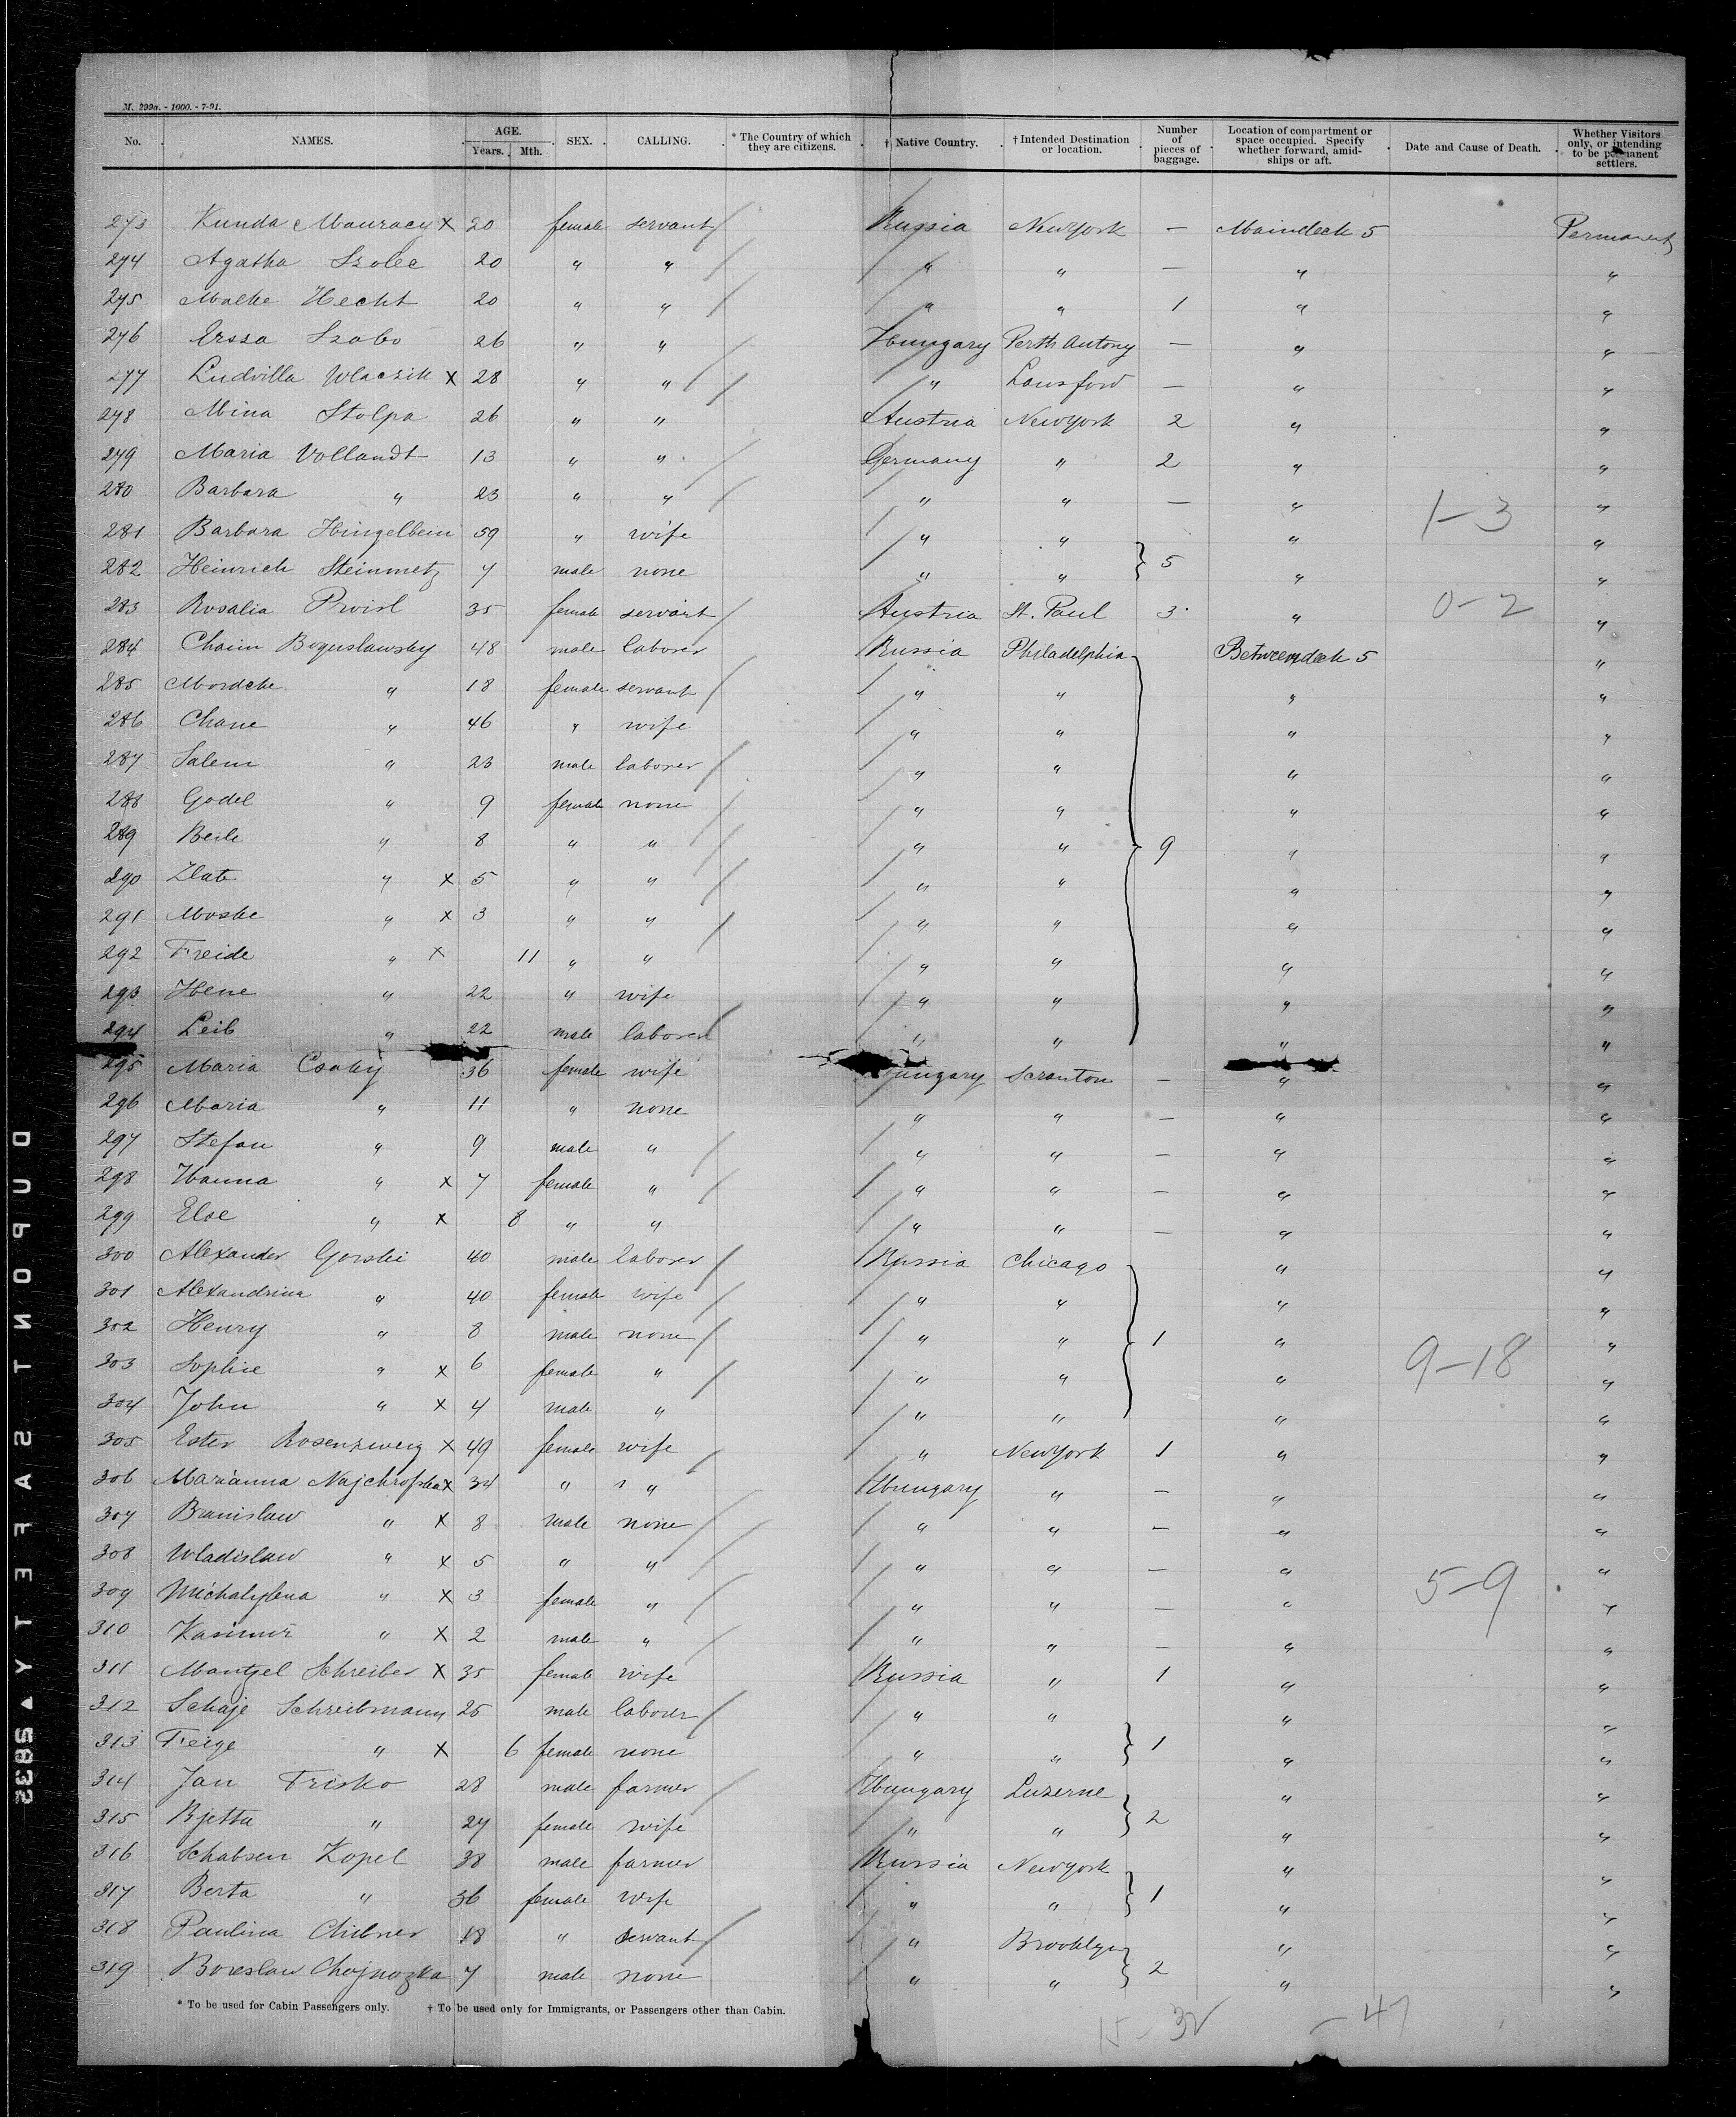 M. 299a. - 1000. - 7-91.
No. NAMES. AGE. Years. Mth. SEX. CALLING. * The Country of which they are citizens. † Native Country. † Intended Destination or location. Number of pieces of baggage. Location of compartment or space occupied. Specify whether forward, amidships or aft. Date and Cause of Death. Whether Visitors only, or intending to be permanent settlers.
273 Kunda Mauracy x 20 female servant Russia New York — Maindeck 5 Permanent
274 Agatha Szolec 20 " " " " — " "
275 Malke Hecht 20 " " " " 1 " "
276 Erssa Szabo 26 " " Hungary Perth Antony — " "
277 Ludvilla Wlaczik x 28 " " " Lansford — " "
278 Mina Stolpa 26 " " Austria New York 2 " "
279 Maria Vollandt 13 " " Germany " 2 " "
280 Barbara " 23 " " " " — " 1-3 "
281 Barbara Hingelbein 59 " wife " " " "
282 Heinrich Steinmetz 7 male none " " 5 " "
283 Rosalia Proisl 35 female servant Austria St. Paul 3 " 0-2 "
284 Chaim Boguslawsky 48 male laborer Russia Philadelphia Betweendeck 5 "
285 Mordche " 18 female servant " " " "
286 Chane " 46 " wife " " " "
287 Salem " 23 male laborer " " " "
288 Godel " 9 female none " " " "
289 Beile " 8 " " " " 9 " "
290 Zlate " x 5 " " " " " "
291 Moske " x 3 " " " " " "
292 Freide " x 11 " " " " " "
293 Hene " 22 " wife " " " "
294 Leib " 22 male laborer " " " "
295 Maria Csaky 36 female wife Hungary Scranton — " "
296 Maria " 11 " none " " — " "
297 Stefan " 9 male " " " — " "
298 Hanna " x 7 female " " " — " "
299 Else " x 8 " " " " — " "
300 Alexander Gorski 40 male laborer Russia Chicago " "
301 Alexandrina " 40 female wife " " " "
302 Henry " 8 male none " " 1 " "
303 Sophie " x 6 female " " " " 9-18 "
304 John " x 4 male " " " " "
305 Ester Rosenzweig x 49 female wife " New York 1 " "
306 Marianna Najchrofska x 34 " " Hungary " — " "
307 Branislaw " x 8 male none " " — " "
308 Wladislaw " x 5 " " " " — " "
309 Michalylena " x 3 female " " " — " 5-9 "
310 Kasimir " x 2 male " " " — " "
311 Mantzel Schreiber x 35 female wife Russia " 1 " "
312 Schaje Schreibmann 25 male laborer " " " "
313 Feige " x 6 female none " " 1 " "
314 Jan Frisko 28 male farmer Hungary Luzerne " "
315 Bjetta " 27 female wife " " 2 " "
316 Schabsen Kopel 38 male farmer Russia New york " "
317 Berta " 36 female wife " " 1 " "
318 Paulina Chibner 18 " servant " Brooklyn " "
319 Boreslaw Chojnozka 7 male none " " 2 " "
* To be used for Cabin Passengers only. † To be used only for Immigrants, or Passengers other than Cabin.
15-32 - 47
DUPONT SAFETY ▲ 5832